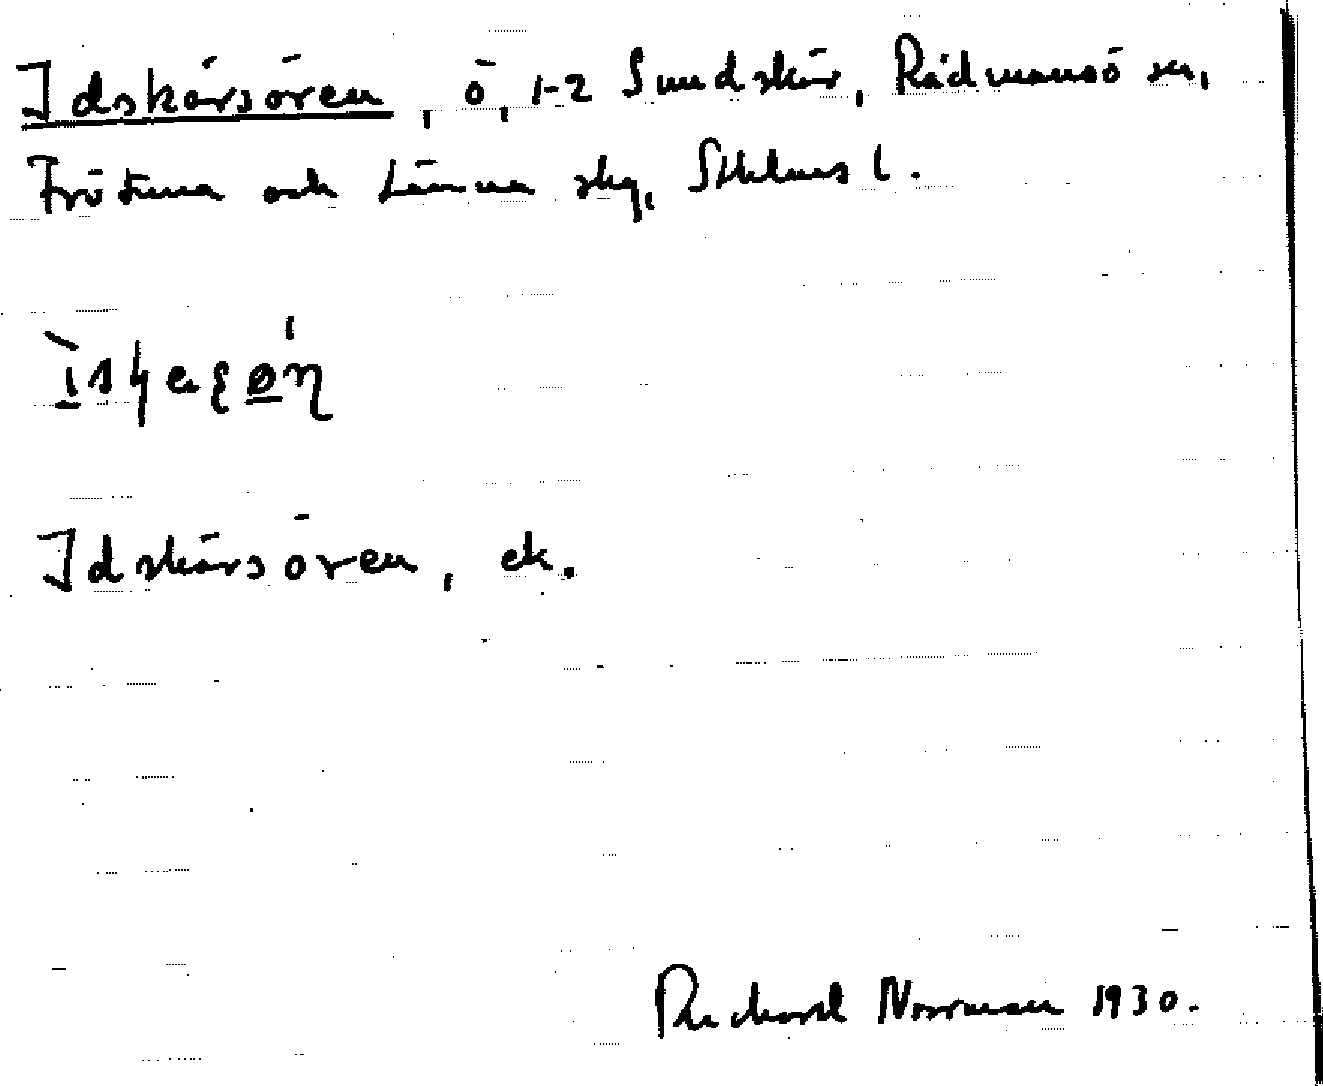 Idskärsören, ö, 1-2 Sundskär, Rådmansö sn,
Frötuna och Länna skg, Sthlms l.
Idskärsören, ek.
Richard Norrman 1930.